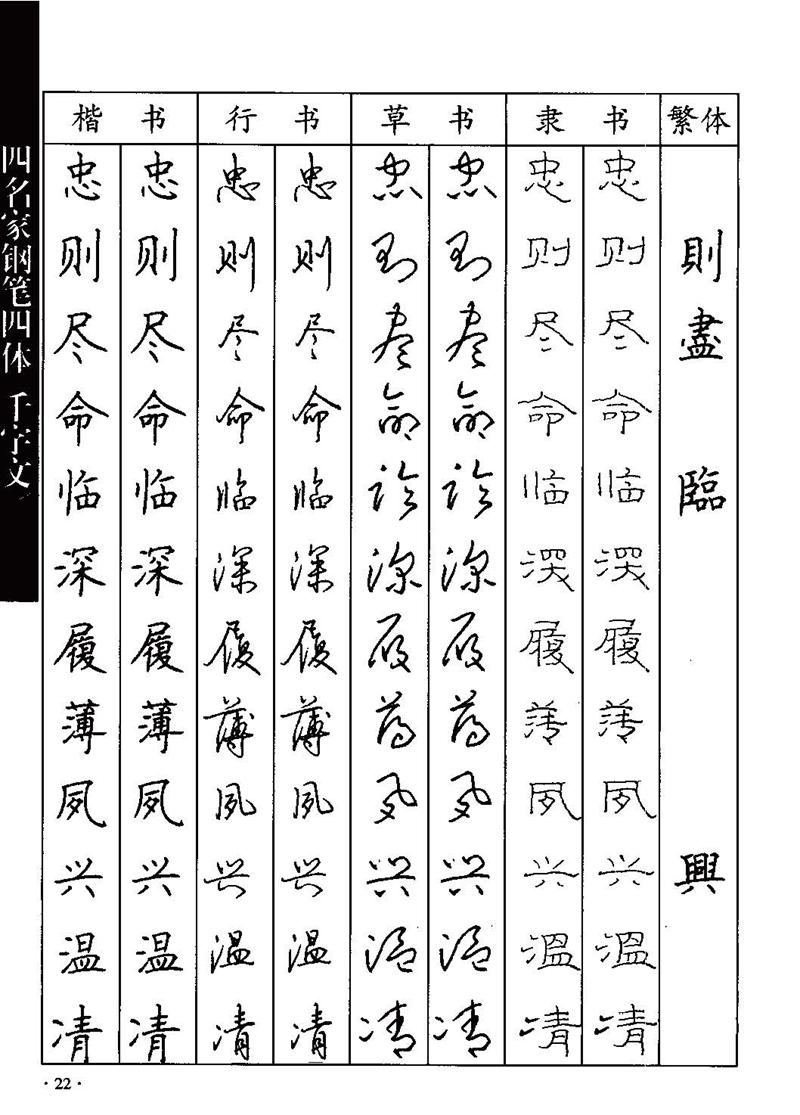 四名家钢笔四体 千字文
楷书 行书 草书 隶书 繁体
忠 忠 忠 忠 忠 忠 忠 忠
则 则 则 则 则 则 则 则 則
尽 尽 尽 尽 尽 尽 尽 尽 盡
命 命 命 命 命 命 命 命
临 临 临 临 临 临 临 临 臨
深 深 深 深 深 深 深 深
履 履 履 履 履 履 履 履
薄 薄 薄 薄 薄 薄 薄 薄
夙 夙 夙 夙 夙 夙 夙 夙
兴 兴 兴 兴 兴 兴 兴 兴 興
温 温 温 温 温 温 温 温
凊 凊 凊 凊 凊 凊 凊 凊
·22·